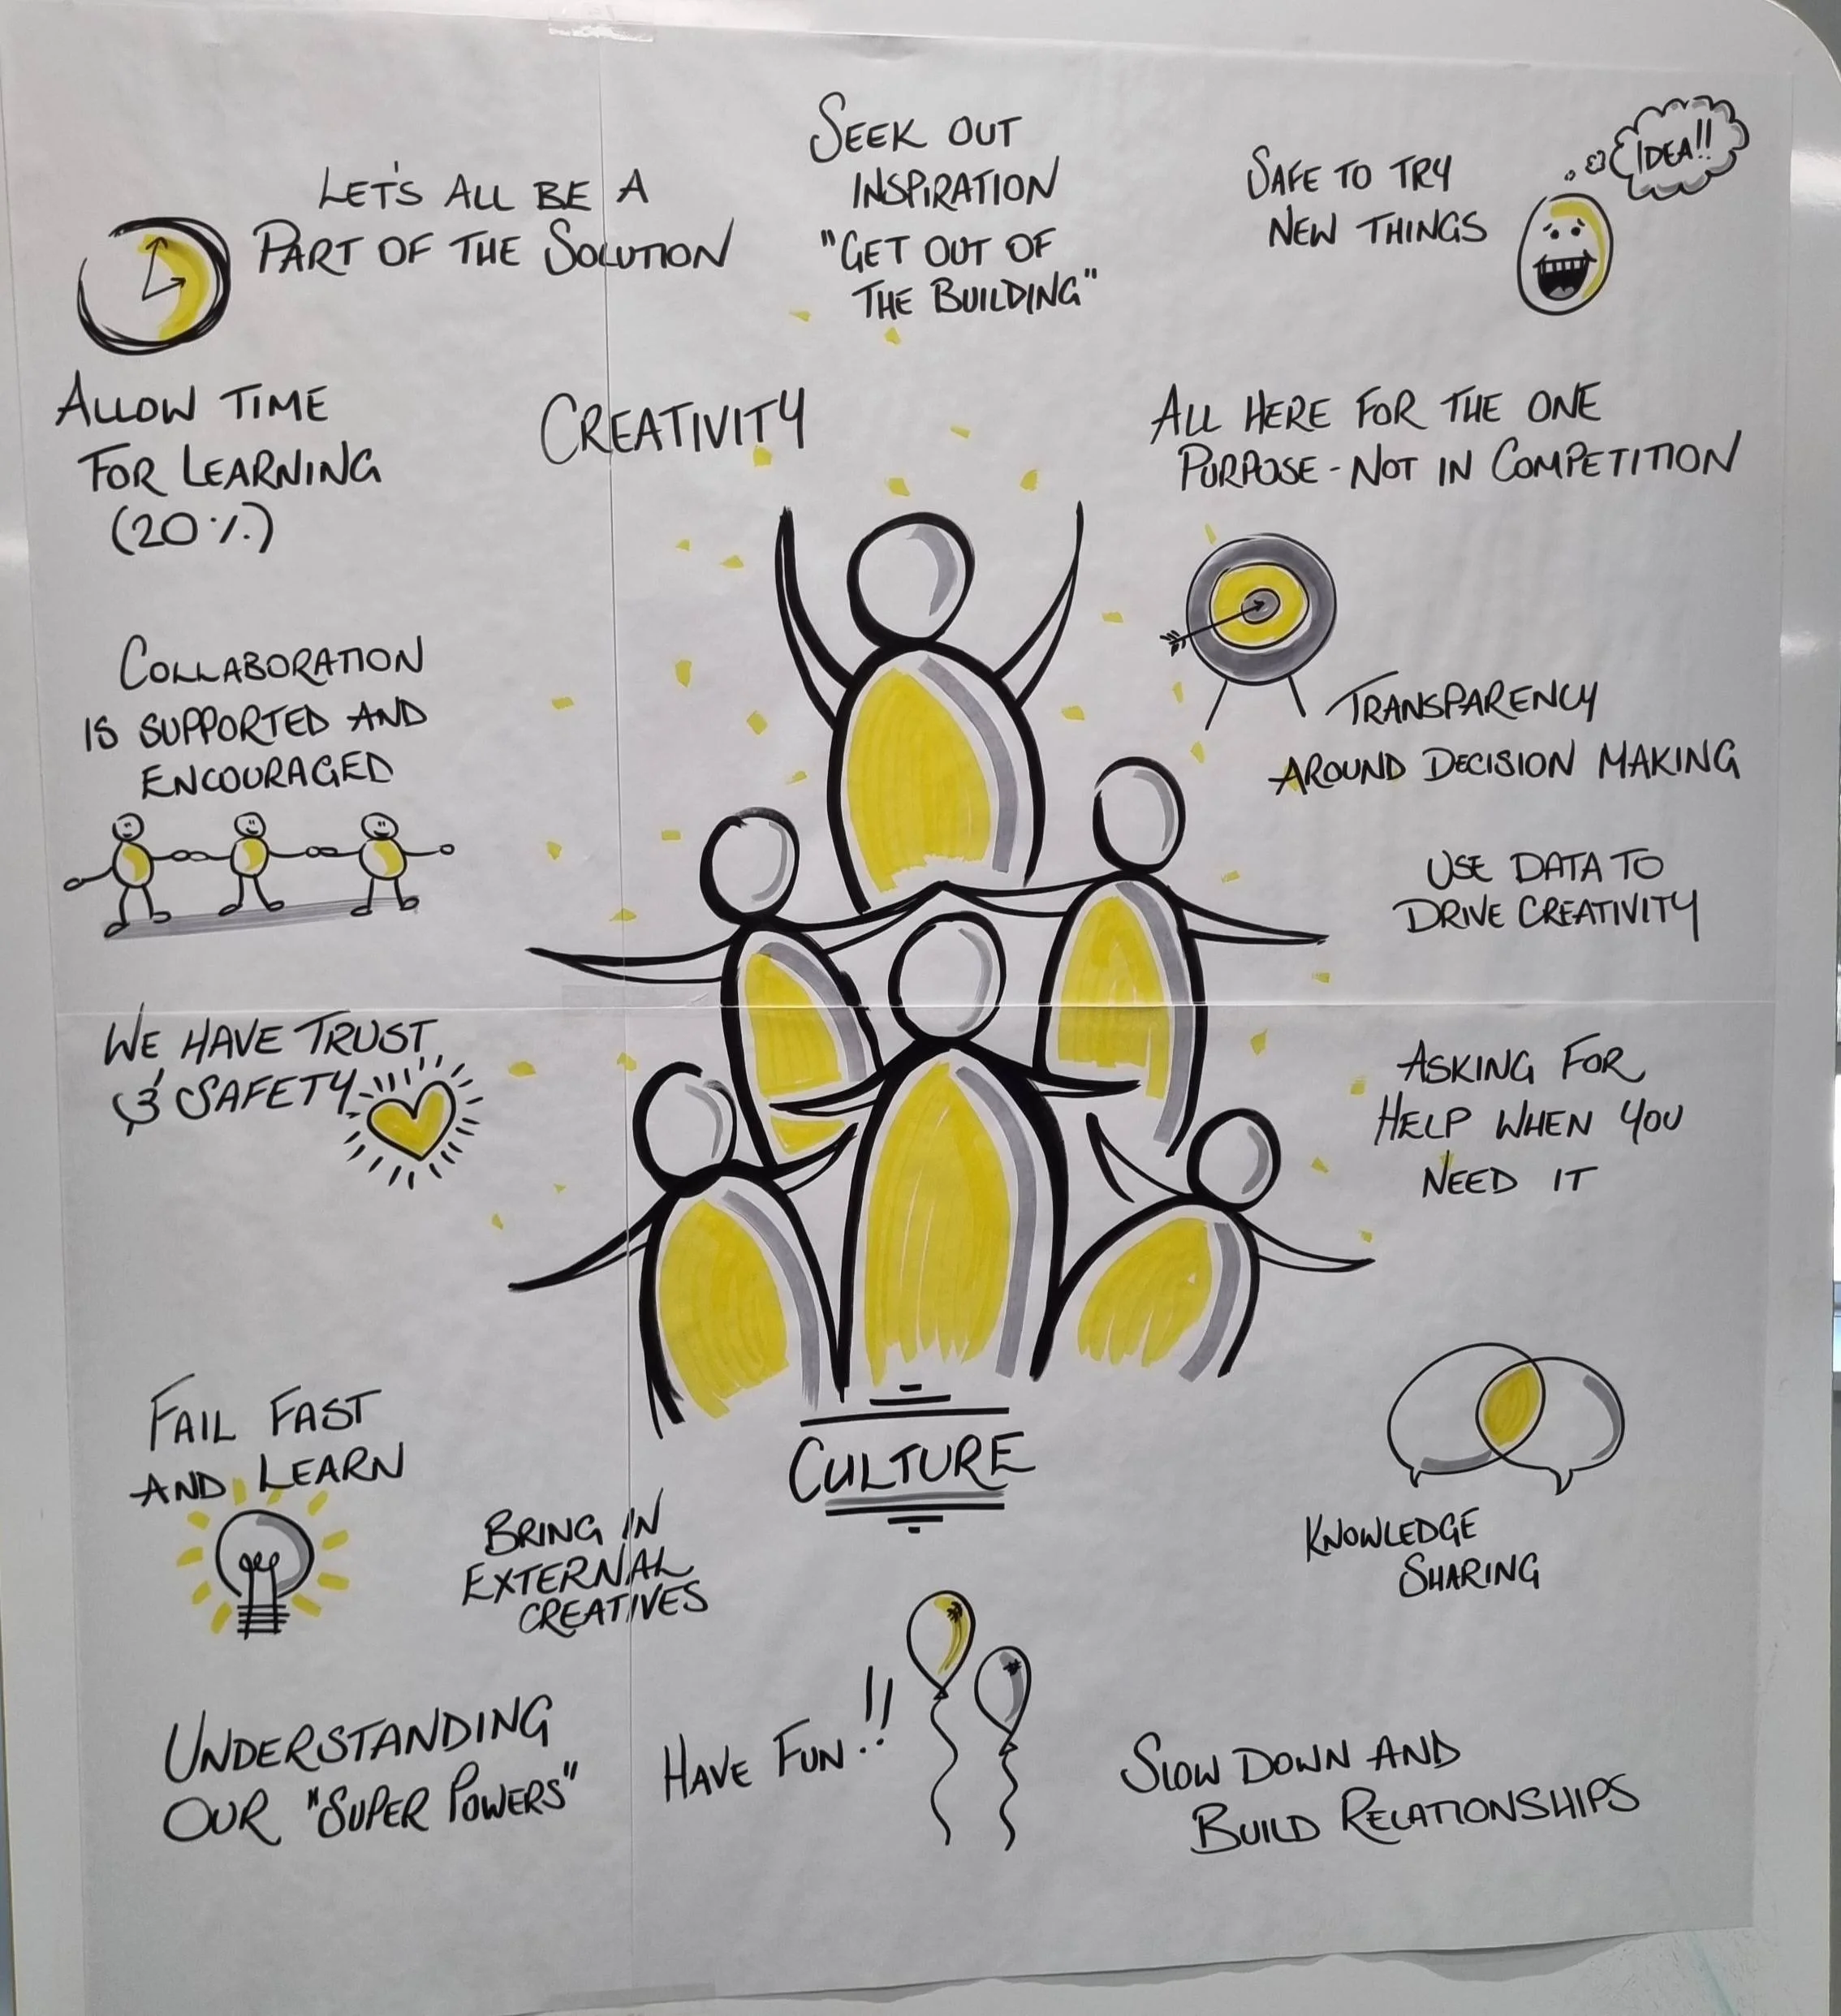 LET'S ALL BE A
PART OF THE SOLUTION
SEEK OUT
INSPIRATION
"GET OUT OF
THE BUILDING"
SAFE TO TRY
NEW THINGS
IDEA!!
ALLOW TIME
FOR LEARNING
(20%)
CREATIVITY
ALL HERE FOR THE ONE
PURPOSE - NOT IN COMPETITION
COLLABORATION
IS SUPPORTED AND
ENCOURAGED
TRANSPARENCY
AROUND DECISION MAKING
USE DATA TO
DRIVE CREATIVITY
WE HAVE TRUST
& SAFETY
ASKING FOR
HELP WHEN YOU
NEED IT
FAIL FAST
AND LEARN
CULTURE
BRING IN
EXTERNAL
CREATIVES
KNOWLEDGE
SHARING
UNDERSTANDING
OUR "SUPER POWERS"
HAVE FUN!!
SLOW DOWN AND
BUILD RELATIONSHIPS